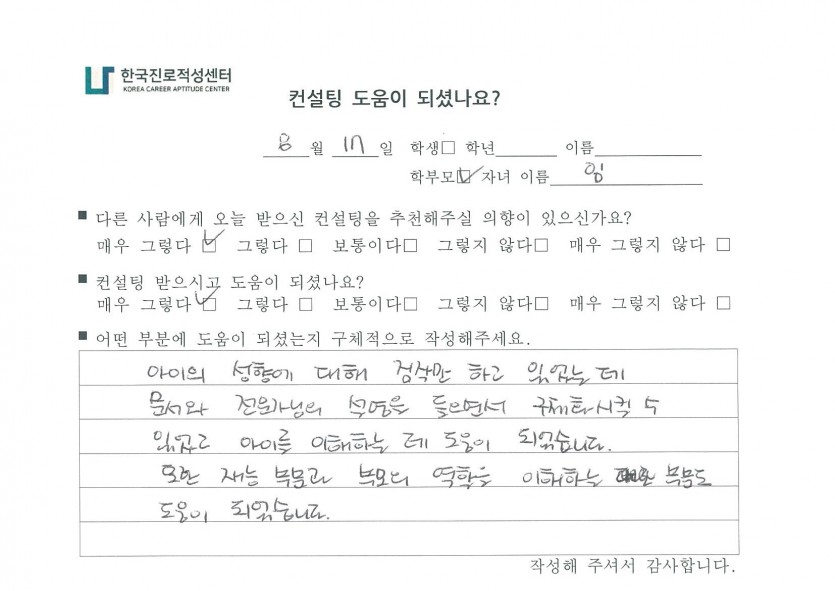 한국진로적성센터
KOREA CAREER APTITUDE CENTER
컨설팅 도움이 되셨나요?
8 월 17 일 학생□ 학년 이름
학부모☑ 자녀 이름 임
■ 다른 사람에게 오늘 받으신 컨설팅을 추천해주실 의향이 있으신가요?
매우 그렇다 ☑ 그렇다 □ 보통이다□ 그렇지 않다□ 매우 그렇지 않다 □
■ 컨설팅 받으시고 도움이 되셨나요?
매우 그렇다 ☑ 그렇다 □ 보통이다□ 그렇지 않다□ 매우 그렇지 않다 □
■ 어떤 부분에 도움이 되셨는지 구체적으로 작성해주세요.
아이의 성향에 대해 짐작만 하고 있었는 데
문서와 전문가님의 설명을 들으면서 구체화시킬 수
있었고 아이를 이해하는 데 도움이 되었습니다.
또한 재능 부문과 부모의 역할을 이해하는 부문도
도움이 되었습니다.
작성해 주셔서 감사합니다.